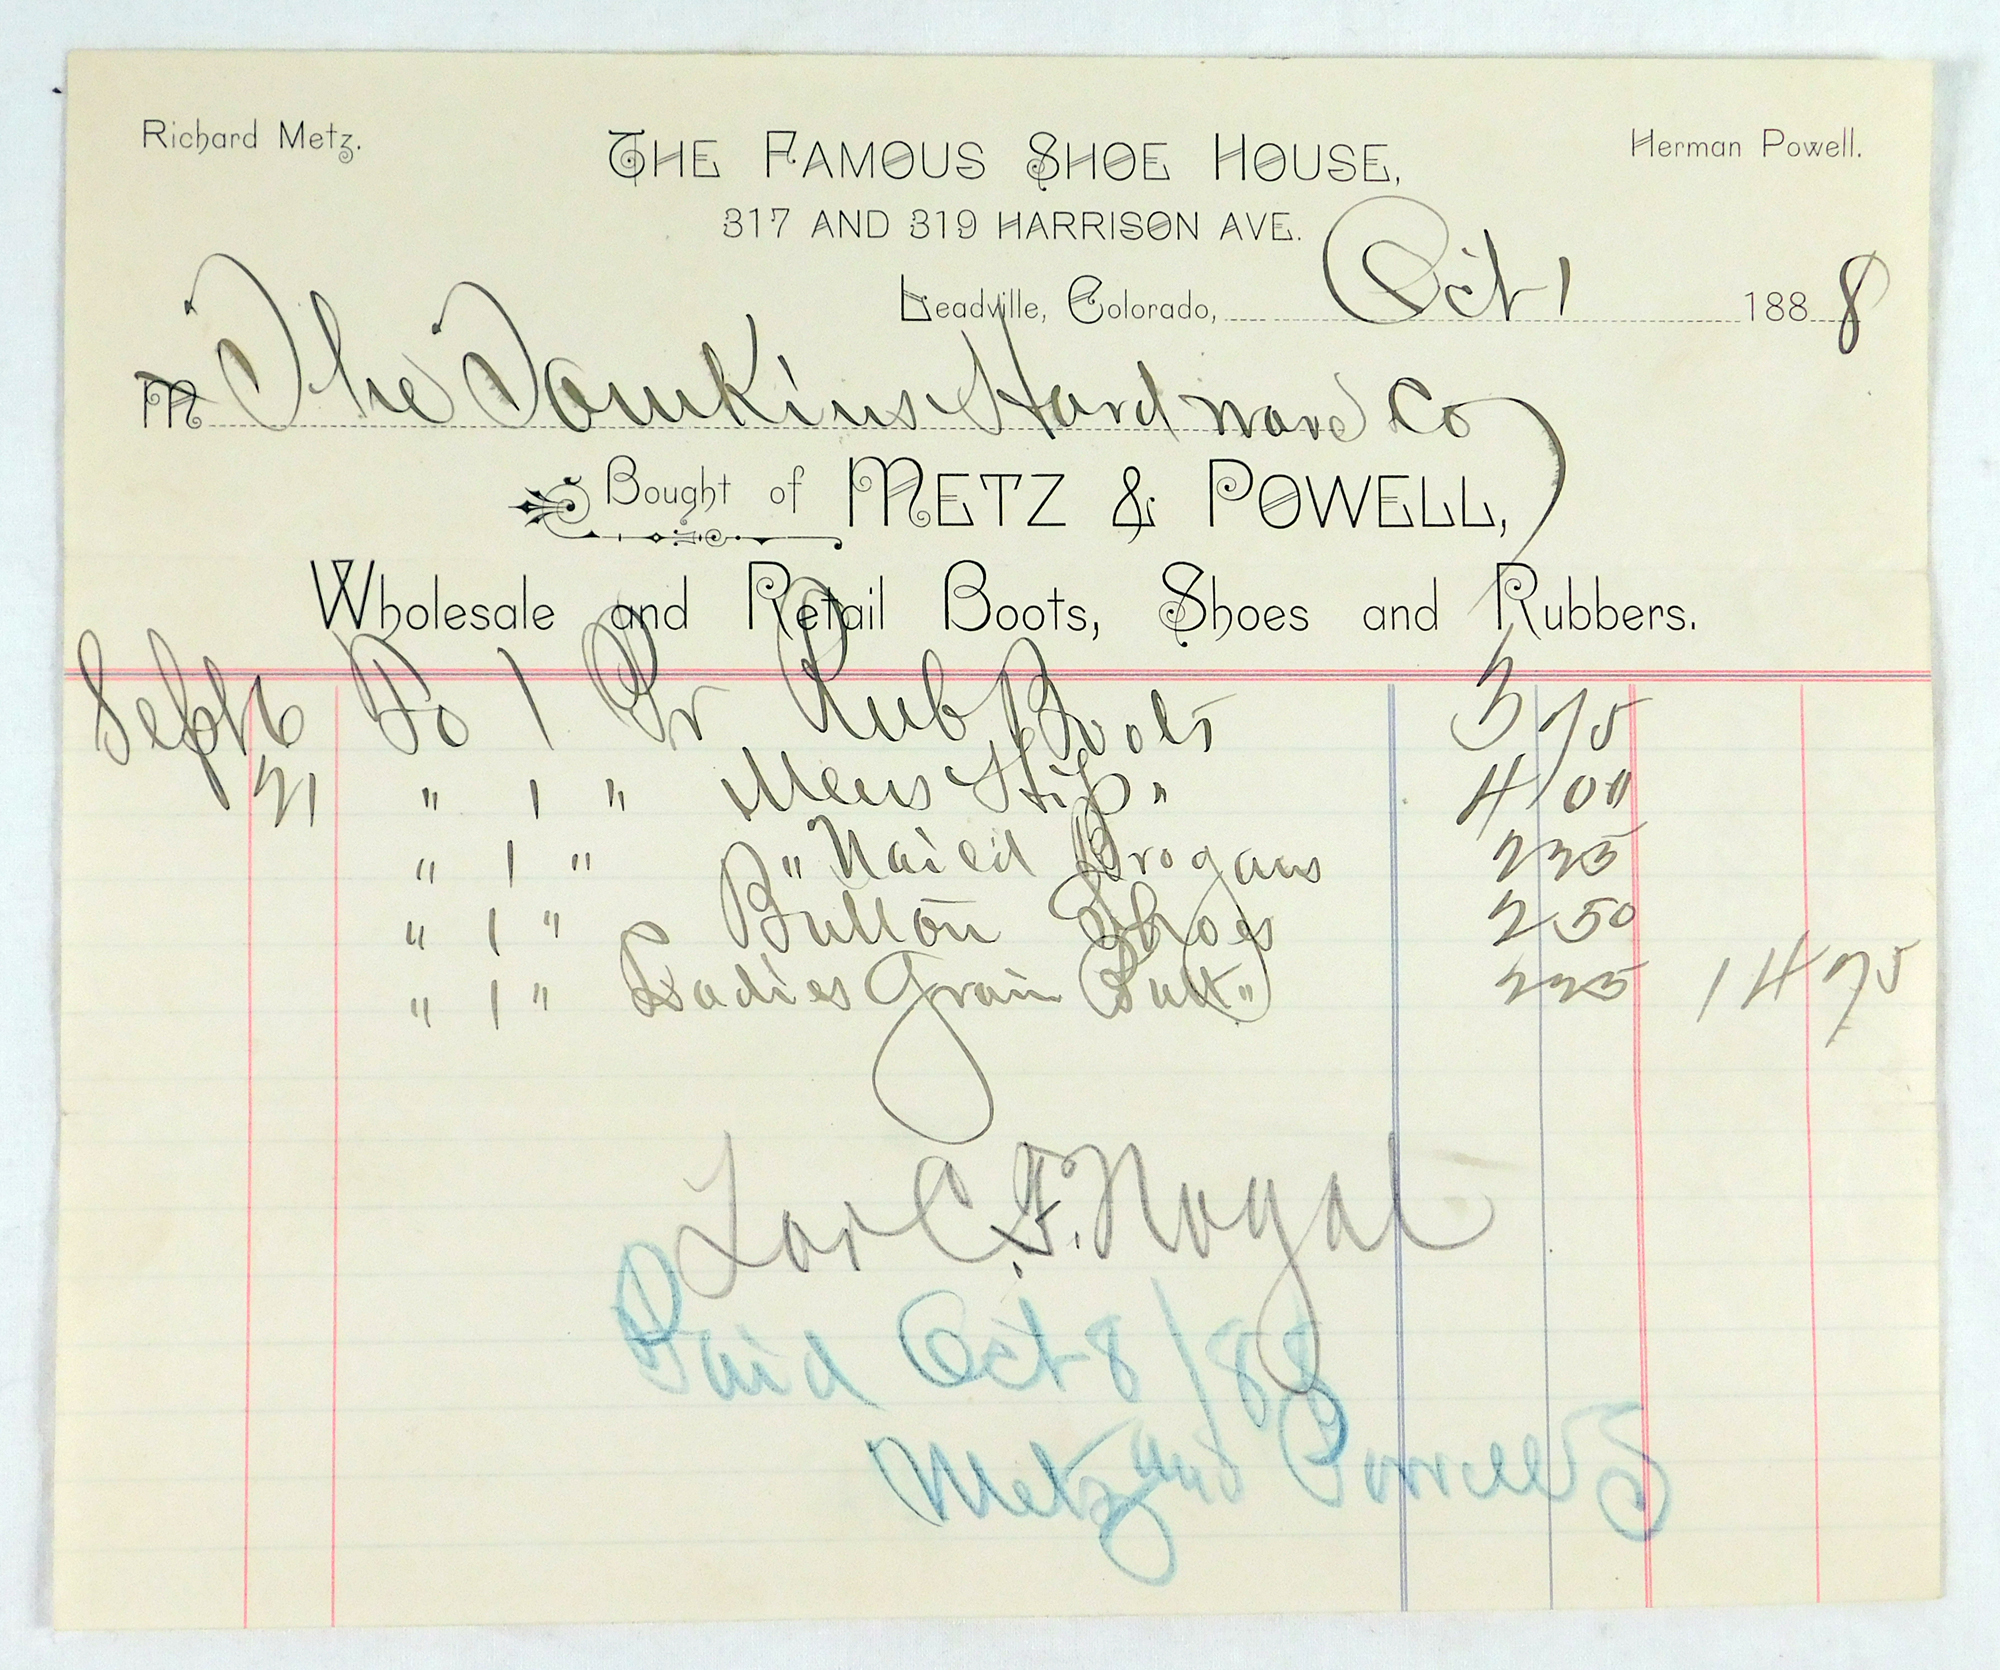 Richard Metz.
THE FAMOUS SHOE HOUSE,
Herman Powell.
317 AND 319 HARRISON AVE.
Leadville, Colorado, Oct 1 1888
M The Tomkins Hardware Co
Bought of METZ & POWELL,
Wholesale and Retail Boots, Shoes and Rubbers.
Sept 6 To 1 Pr Rub Boots 3 75
21 " 1 " Mens " 4 00
" 1 " " Nailed Brogans 2 25
" 1 " Button Shoes 2 50
" 1 " Ladies Grain Butt " 2 25 14 75
For C. F.
Paid Oct 8/88
Metz and Powell